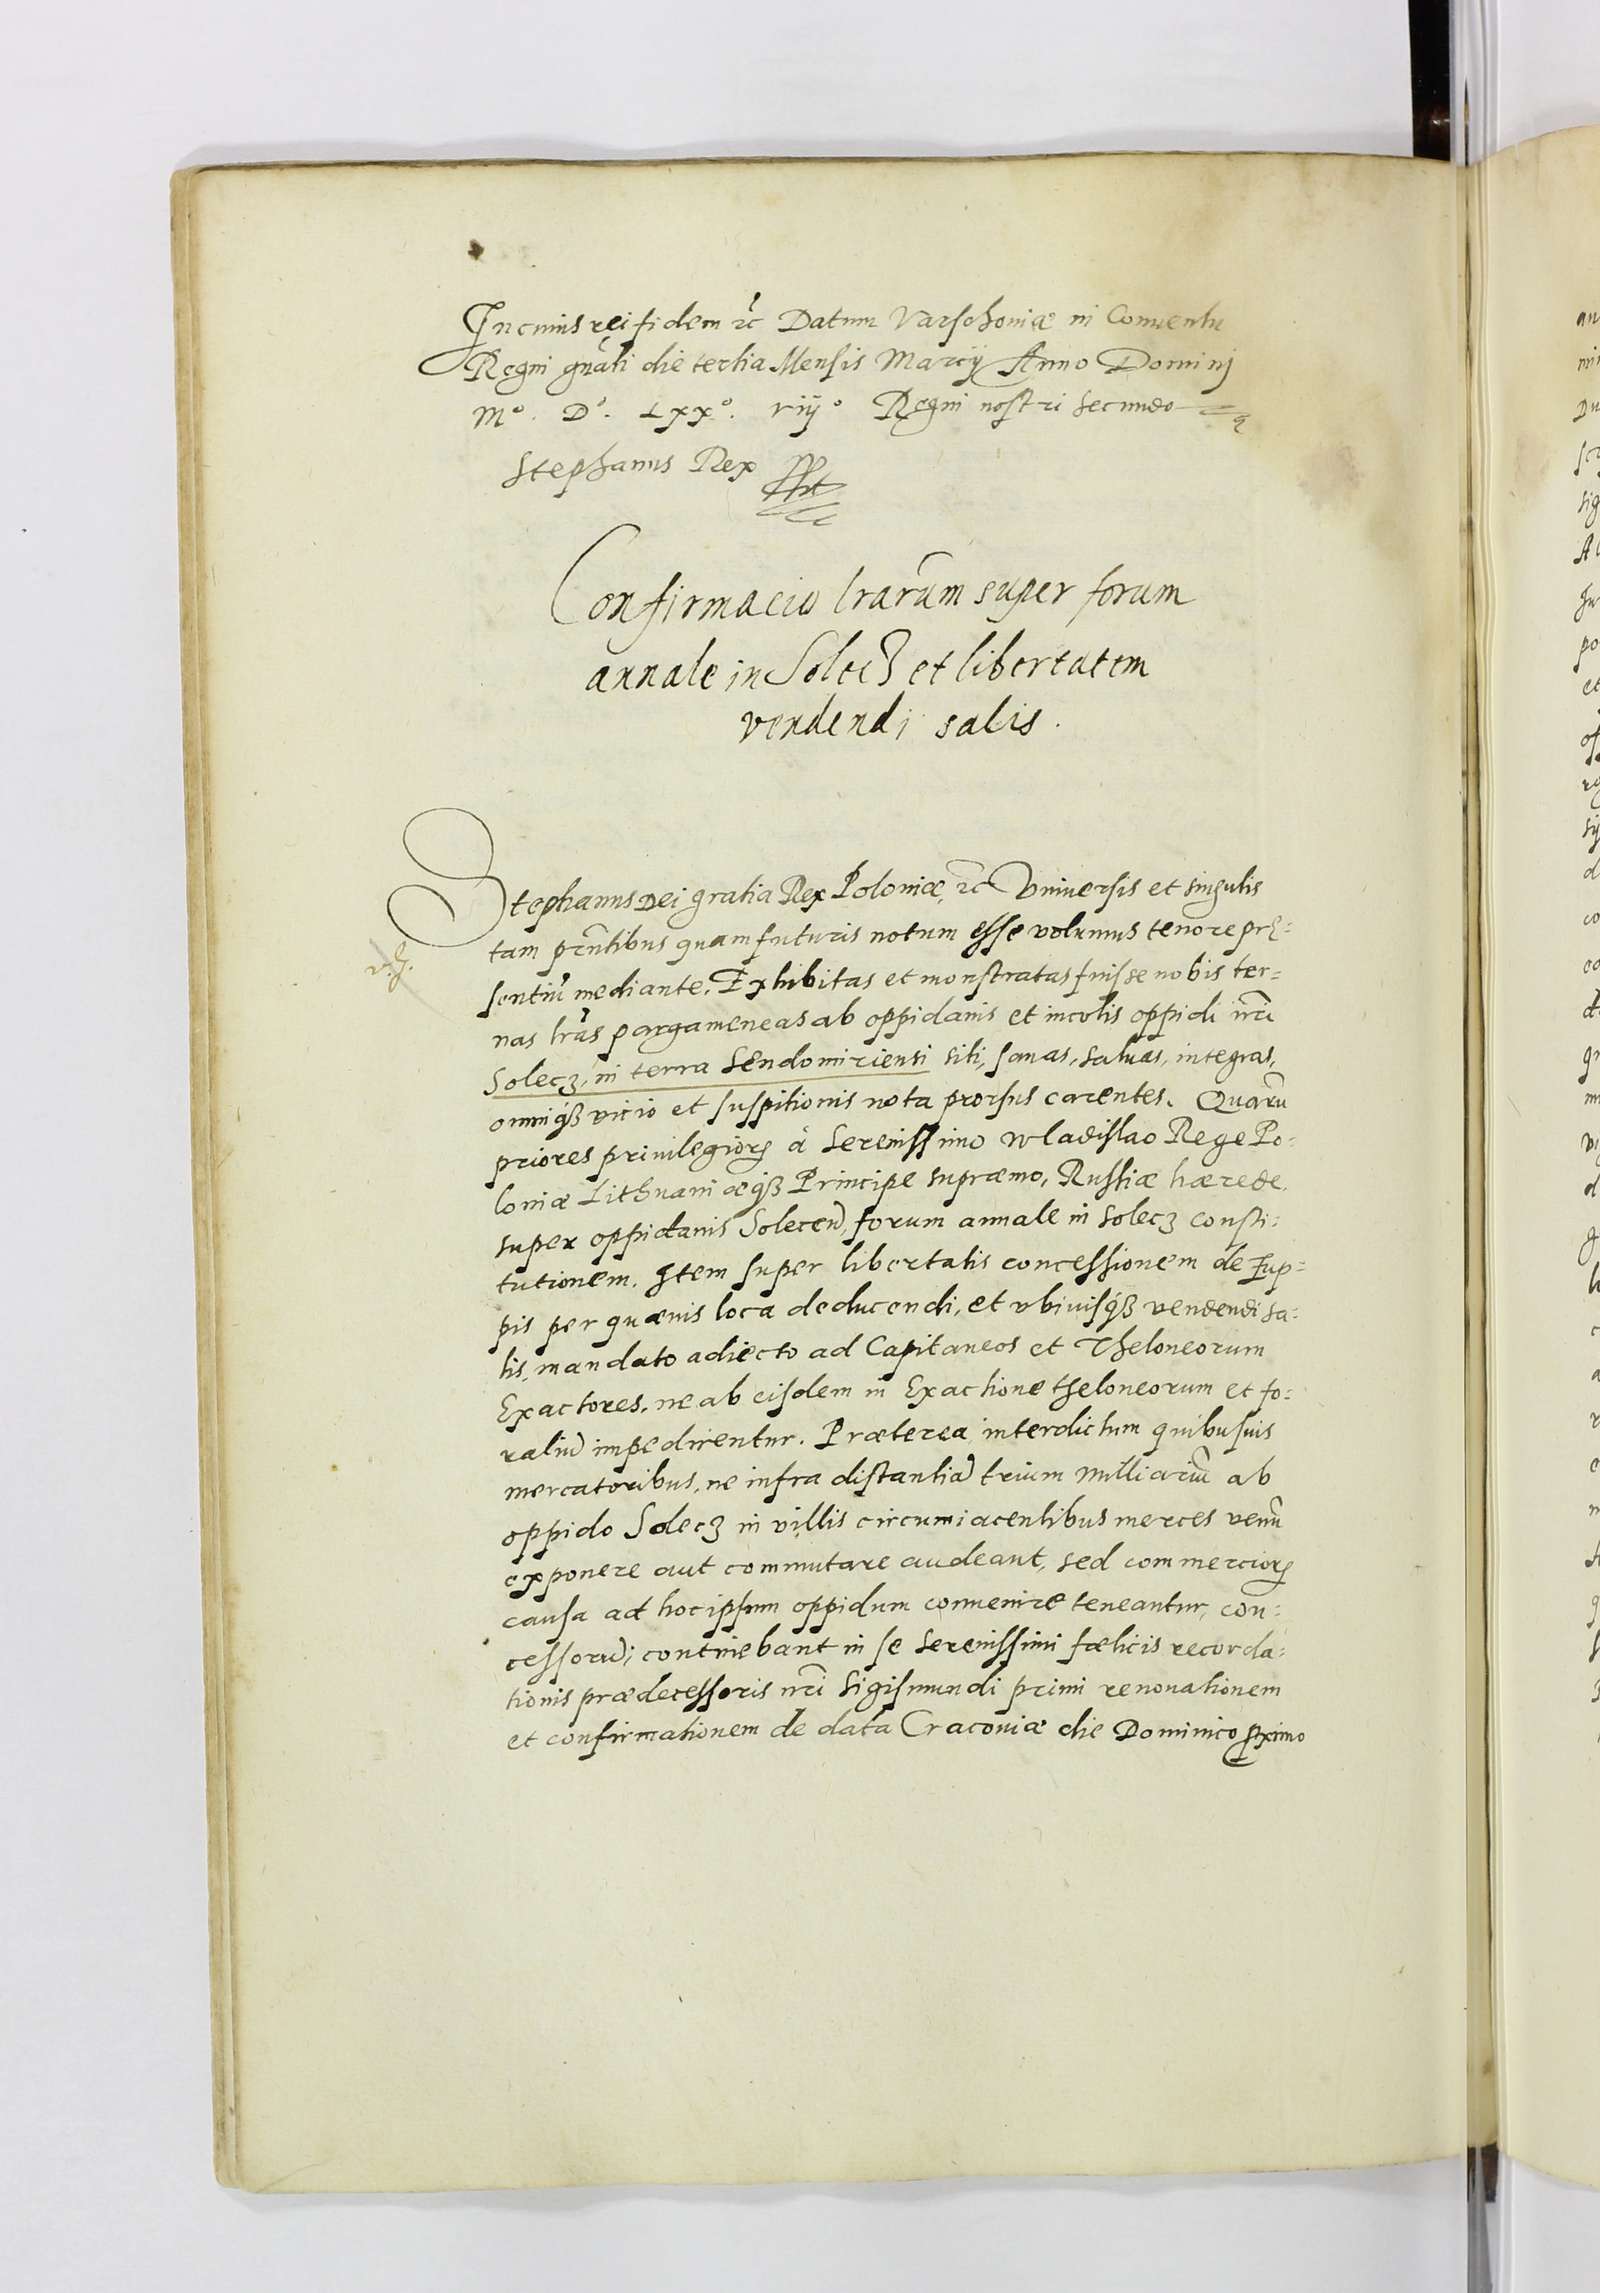 In cuius rei fidem etc Datum Varschoviæ in Conventu
Regni gnãli die tertia Mensis Marcÿ Anno Dominj
Mº. Dº. Lxxº. viijº Regni nostri secundo
Stephanus Rex
Confirmacio lrarũm super forum
annale in Solecz et libertatem
vendendi salis.
Stephanus Dei gratia Rex Poloniæ, etc Vniversis et singulis
tam prñtibus quam futuris notum esse volumus tenore prę-
sentiũ mediante. Exhibitas et monstratas fuisse nobis ter-
nas lrãs pargameneas ab oppidanis et incolis oppidi nrĩ
Solecz, in terra Sendomiriensi siti, sanas, salvas, integras,
omniq3 vicio et suspitionis nota prorsus carentes. Quarũ
priores privilegiorꝝ à Serenissimo Wladislao Rege Po-
loniæ Lithvaniæq3 Principe supræmo, Russiæ hærede,
super oppidanis Solecen̄, forum annale in Solecz consti-
tutionem. Item super libertatis concessionem de Zup-
pis per quævis loca deducendi, et vbivisq3 vendendi sa-
lis, mandato adiecto ad Capitaneos et Theloneorum
Exactores, ne ab eisdem in Exactione theloneorum et fo-
raliũ impedirentur. Præterea interdictum quibusvis
mercatoribus, ne infra distantiã trium milliariũ ab
oppido Solecz in villis circumiacentibus merces venũ
exponere aut commutare audeant, sed commerciorꝝ
causa ad hoc ipsum oppidum convenire teneantur, con-
cessorũ; continebant in se Serenissimi fœlicis recorda-
tionis prædecessoris nrĩ Sigismundi primi renovationem
et confirmationem de data Cracoviæ die Dominico proximo